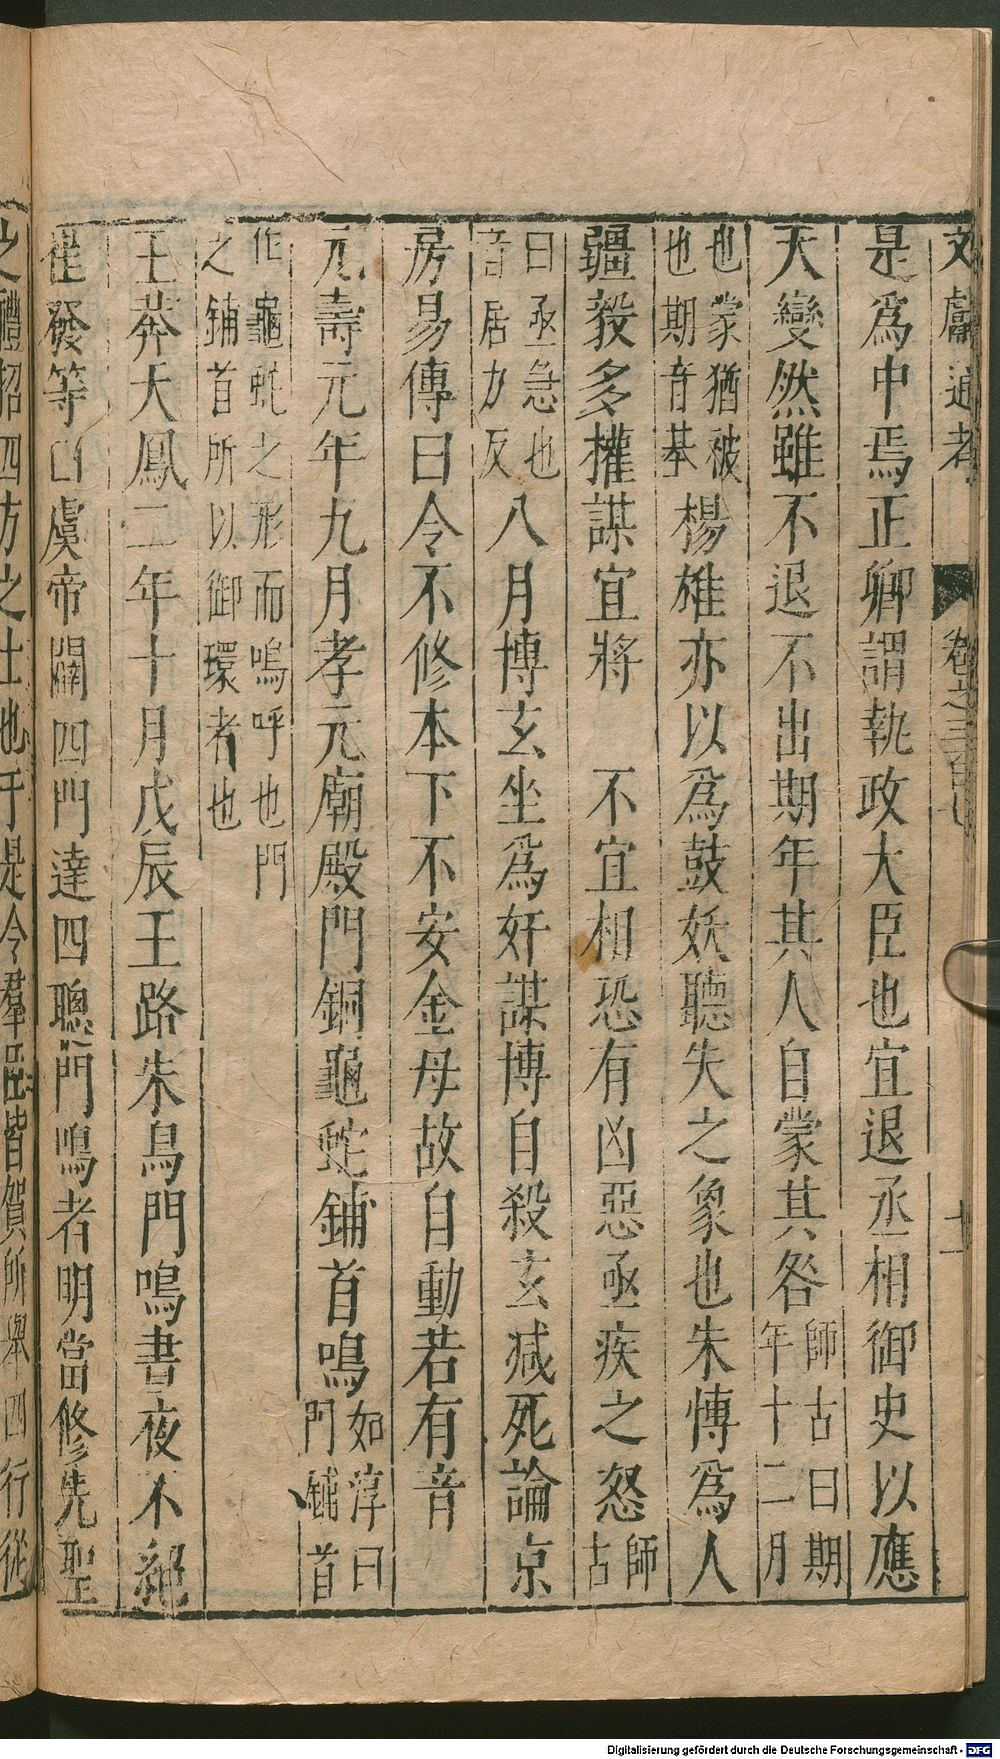 文獻通考 卷之三百七 十一
是爲中焉正卿謂執政大臣也宜退丞相御史以應
天變然雖不退不出期年其人自蒙其咎師古曰期年十二月
也蒙猶被也期音基楊雄亦以爲鼓妖聽失之象也朱愽爲人
疆毅多權謀宜將 不宜相恐有凶惡亟疾之怒師古
曰亟急也音居力反八月博玄坐爲奸謀博自殺玄减死論京
房易傳曰令不修本下不安金毋故自動若有音
元壽元年九月孝元廟殿門銅龜蛇鋪首鳴如淳曰門鋪首
作龜蛇之形而鳴呼也門之鋪首所以御環者也
王莽天鳳二年十月戊辰王路朱鳥門鳴晝夜不絕
崔發等曰虞帝闢四門達四聰門鳴者明當修先聖
之禮招四方之士也于是令羣臣皆賀所舉四行從
Digitalisierung gefördert durch die Deutsche Forschungsgemeinschaft - DFG